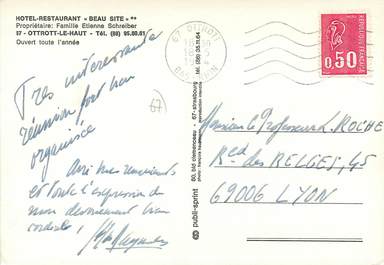 HOTEL-RESTAURANT "BEAU SITE" **
Propriétaire: Famille Etienne Schreiber
67 - OTTROTT-LE-HAUT - Tél. (88) 95.80.61
Ouvert toute l'année
Très intéressante
réunion fort bien
organisée
67
et toute l'expression de
mon dévouement bien
cordial
67 OTTROTT
BAS-RHIN
0,50
80, bld clemenceau - 67-strasbourg - tél. (88) 35.11.64
reproduction interdite
publi-sprint
Monsieur le Professeur L. ROCHE
Bd des BELGES, 45
69006 LYON